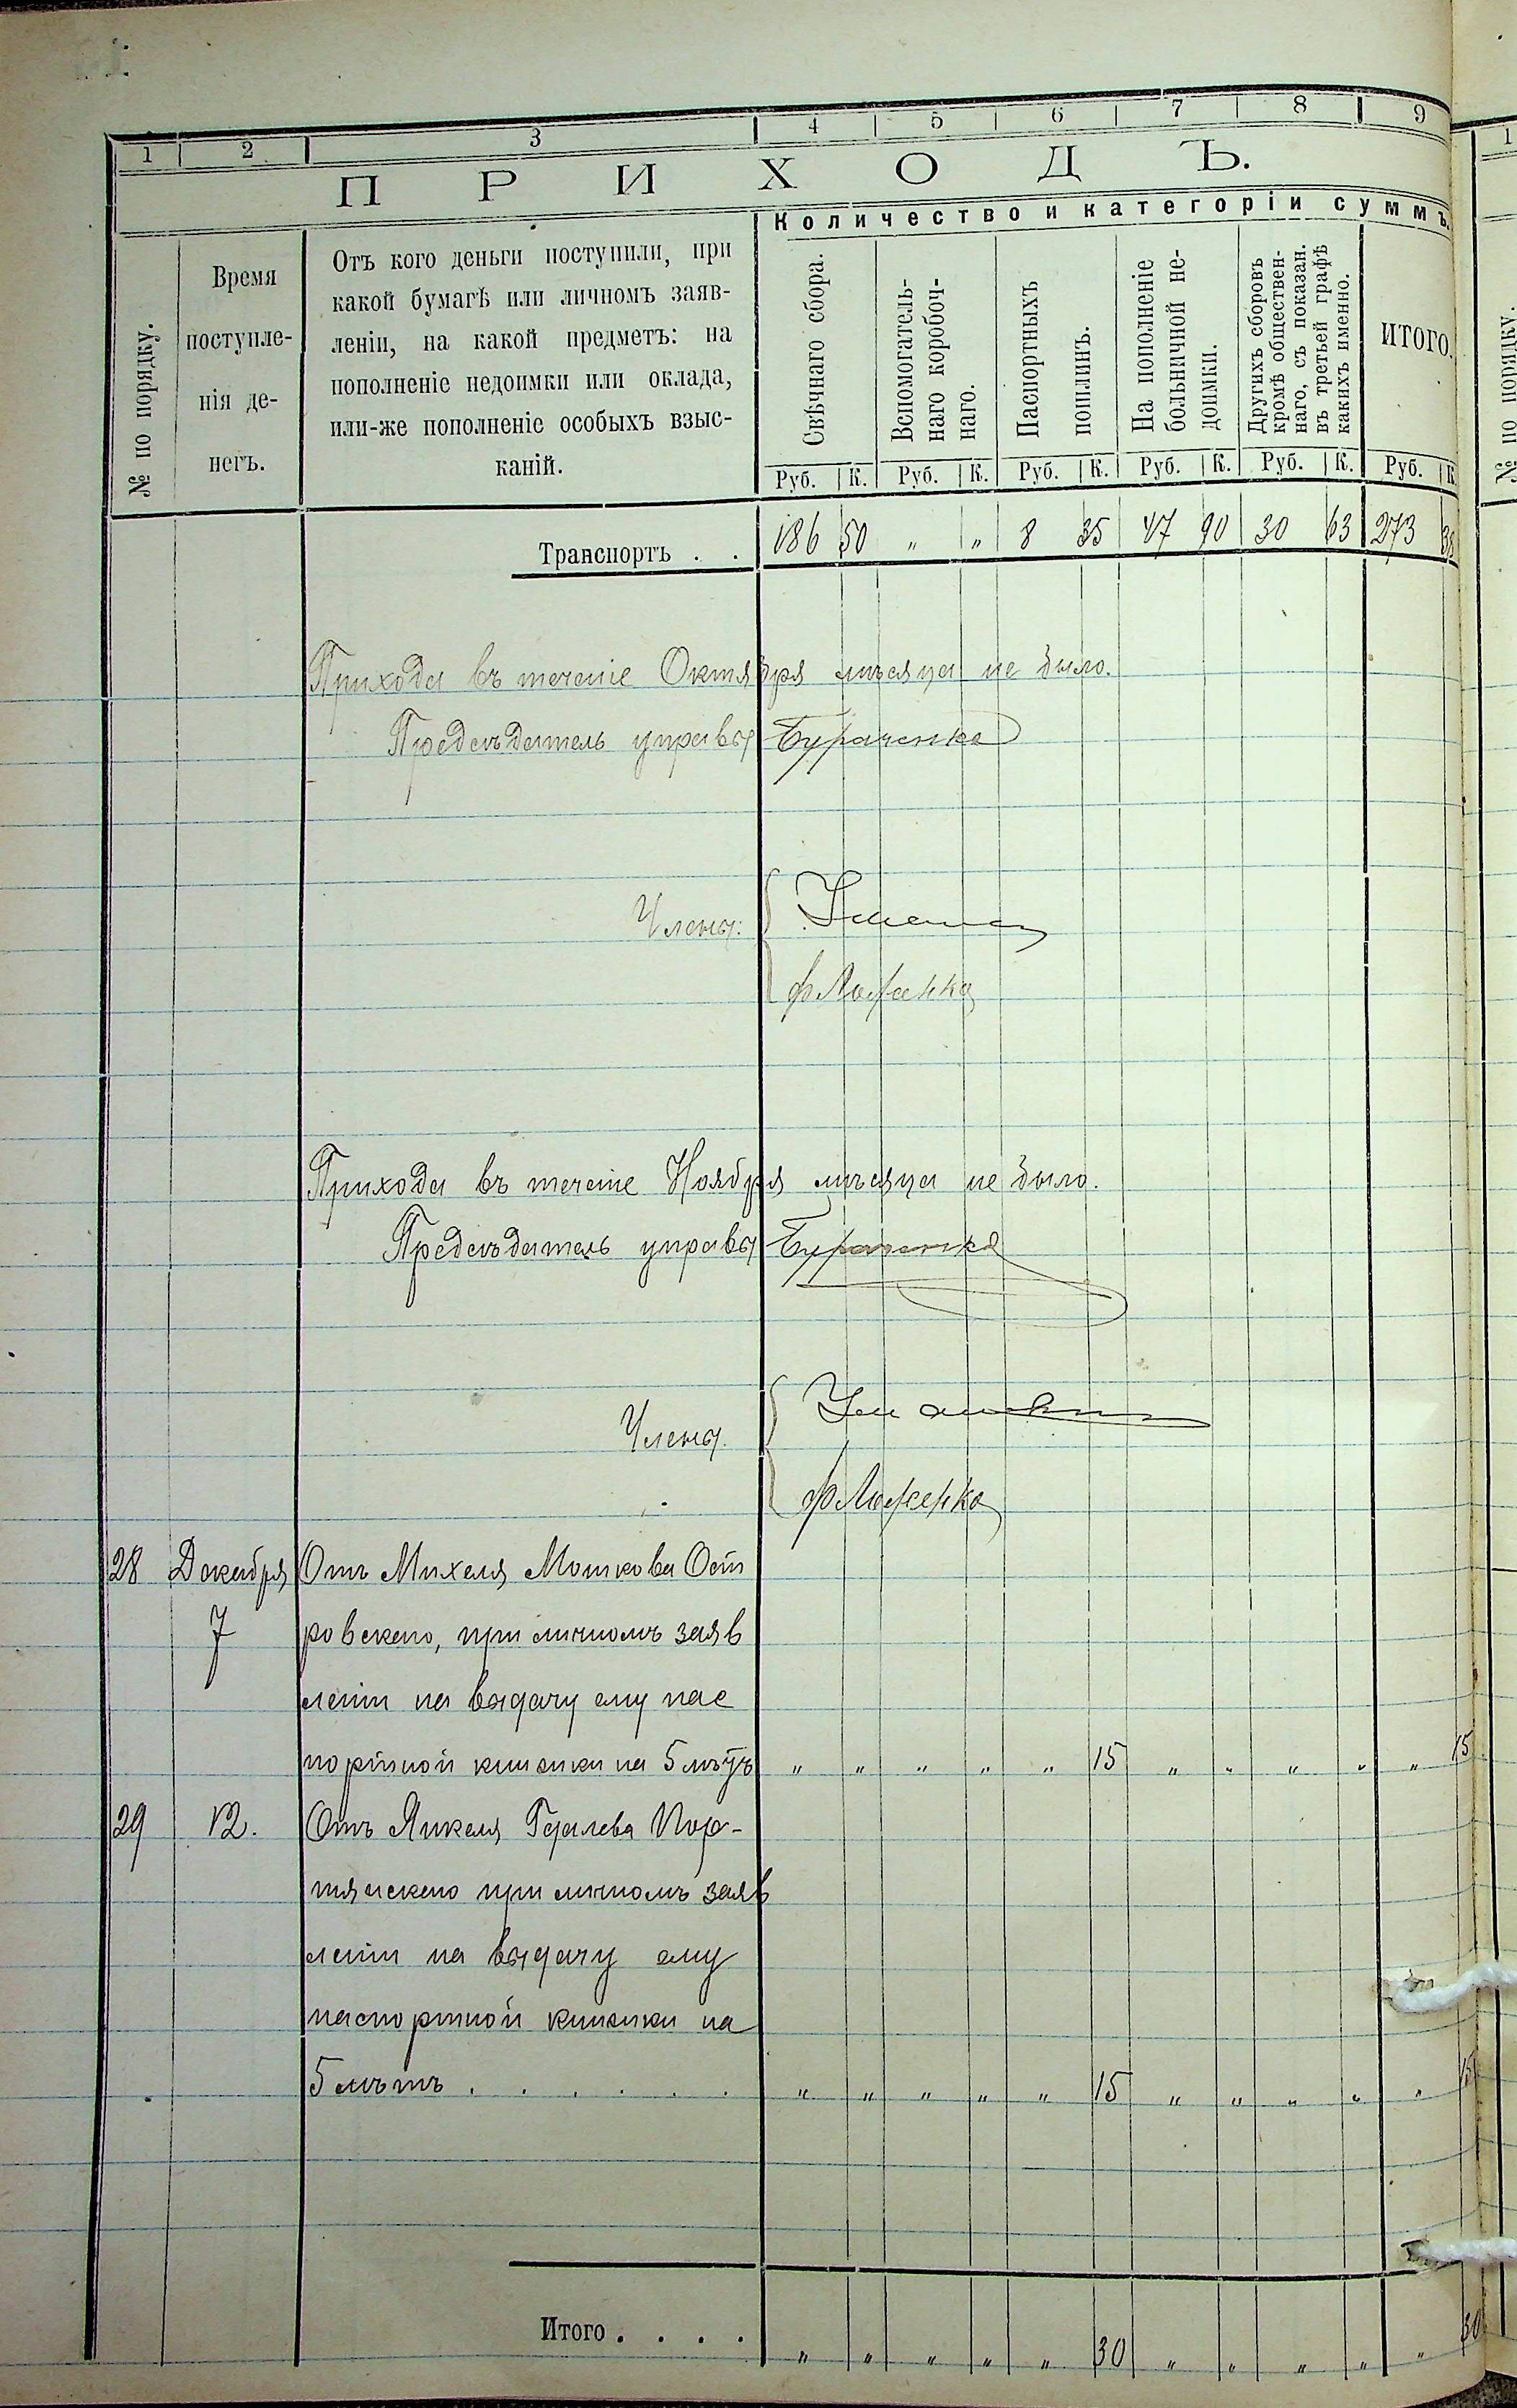 1 2 3 4 5 6 7 8 9
ПРИХОДЪ.
Количество и категоріи суммъ.
№ по порядку.
Время
поступле-
нія де-
негъ.
Отъ кого деньги поступили, при
какой бумагѣ или личномъ заяв-
леніи, на какой предметъ: на
пополненіе недоимки или оклада,
или-же пополненіе особыхъ взыс-
каній.
Свѣчнаго сбора.
Вспомогатель-
наго коробоч-
наго.
Паспортныхъ
пошлинъ.
На пополненіе
больничной не-
доимки.
Другихъ сборовъ
кромѣ обществен-
наго, съ показан.
въ третьей графѣ
какихъ именно.
ИТОГО.
Руб. К. Руб. К. Руб. К. Руб. К. Руб. К. Руб. К
Транспортъ . . 186 50 " " 8 35 47 90 30 63 273 38
Прихода въ теченіе Октября мѣсяца не было.
Предсѣдатель управы Бураченко
Члены:
Прихода въ теченіе Ноября мѣсяца не было.
Предсѣдатель управы Бураченко
Члены
28 Декабря Отъ Михеля Мошкова Ост
7 ровскаго, при личномъ заяв
леніи на выдачу ему пас
портной книжки на 5 лѣтъ " " " " " 15 " " " " " 15
29 12. Отъ Янкеля Гдалева Пор-
тянскаго при личномъ заяв
леніи на выдачу ему
паспортной книжки на
5 лѣтъ . . . . . . " " " " " 15 " " " " " 15
Итого . . . . " " " " " 30 " " " " " 30
1
№ по порядку.